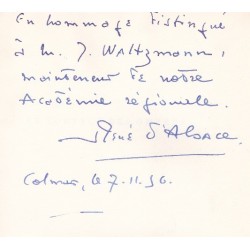 En hommage distingué
à M. J. Waltzmann,
mainteneur de notre
Académie régionale.
René d'Alsace
Colmar, le 7.11.56.